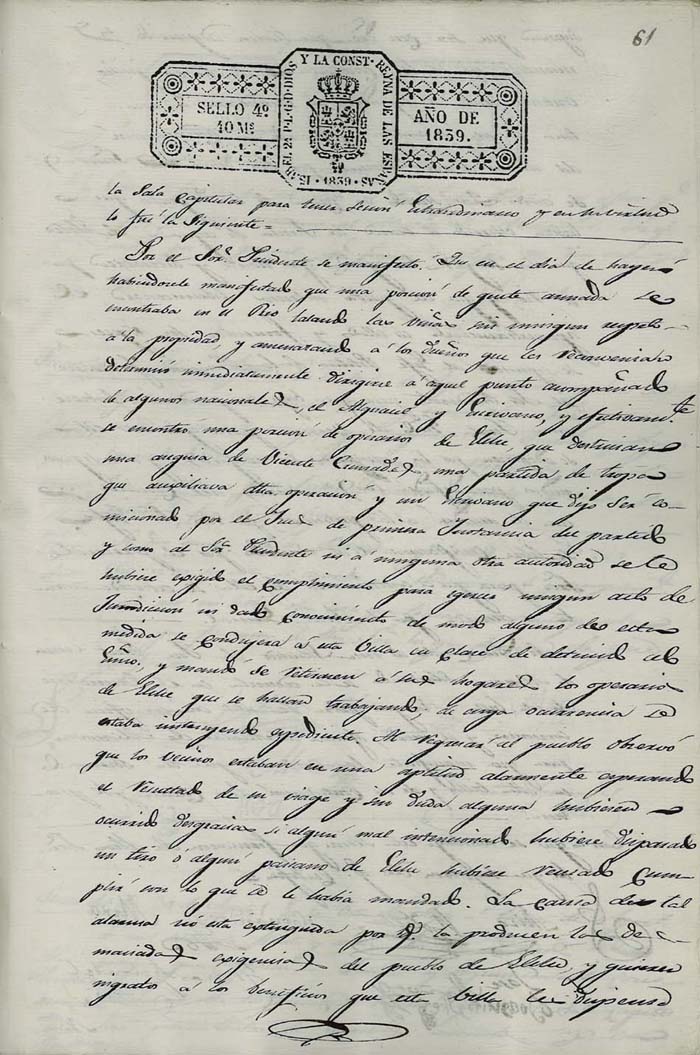 61
ISABEL 2ª P.L.G.D.DIOS Y LA CONST. REYNA DE LAS ESPAÑAS
SELLO 4º
40 Ms
AÑO DE
1839.
1839
la Sala Capitular para tener Sesion Extraordinaria y en su virtud
lo fué la Siguiente=
Por el Sor. Presidente se manifesto: Que en el dia de hayer
habiendosele manifestado que una porcion de gente armada se
encontraba en el Rio talando las viñas sin ningun respeto
á la propiedad y amenazando á los dueños que les reconvenian
determinó inmediatamente dirigirse á aquel punto acompañado
de algunos nacionales, el Alguacil y Escrivano, y efectivamte
se encontro una porcion de operarios de Elche, que destruian
una azequia de Vicente una partida de tropa
que auxiliava dha operacion y un Escrivano que dijo ser co-
micionado por el Juez de primera Instancia del partido
y como al Sor. Presidente ni á ninguna otra autoridad se le
hubiese exigido el cumplimiento para egercer ningun acto de
Jurisdicion ni dado conocimiento de modo alguno de esta
medida se condujera á esta Villa en clase de detenido al
Essno, y mandó se retirasen á sus hogares los operarios
de Elche que se hallan trabajando, de cuya ocurrencia se
estaba instruyendo expediente. Al regresar al pueblo observó
que los vecinos estaban en una aptitud alarmente esperando
el resultado de su viage y sin duda alguna hubieran
ocurrido desgracias si algun mal intencionado hubiese disparado
un tiro ó algun paisano de Elche hubiese reusado cum-
plir con lo que se le habia mandado. La causa de tal
alarma no esta extinguida por q. la producen las de-
masiadas exigencias del pueblo de Elche, y quienes
ingratos á los beneficios que esta Villa les dispensa